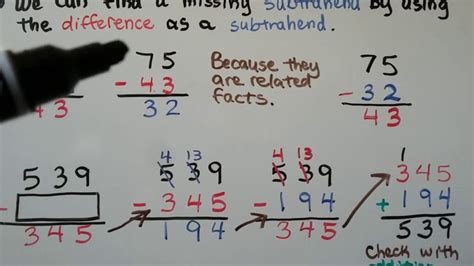 We can find a missing subtrahend by using
the difference as a subtrahend.
43
75
- 43
32
Because they
are related
facts.
75
- 32
43
539
-
345
4 13
539
- 345
194
4 13
539
- 194
345
1
345
+ 194
539
Check with